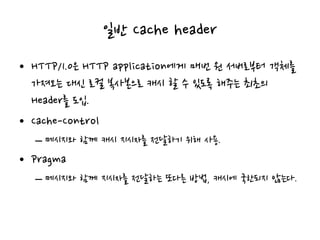 일반 Cache header
• HTTP/1.0은 HTTP application에게 매번 원 서버로부터 객체를
가져오는 대신 로컬 복사본으로 캐시 할 수 있도록 해주는 최초의
Header를 도입.
• Cache-Control
– 메시지와 함께 캐시 지시자를 전달하기 위해 사용.
• Pragma
– 메시지와 함께 지시자를 전달하는 또다른 방법, 캐시에 국한되지 않는다.